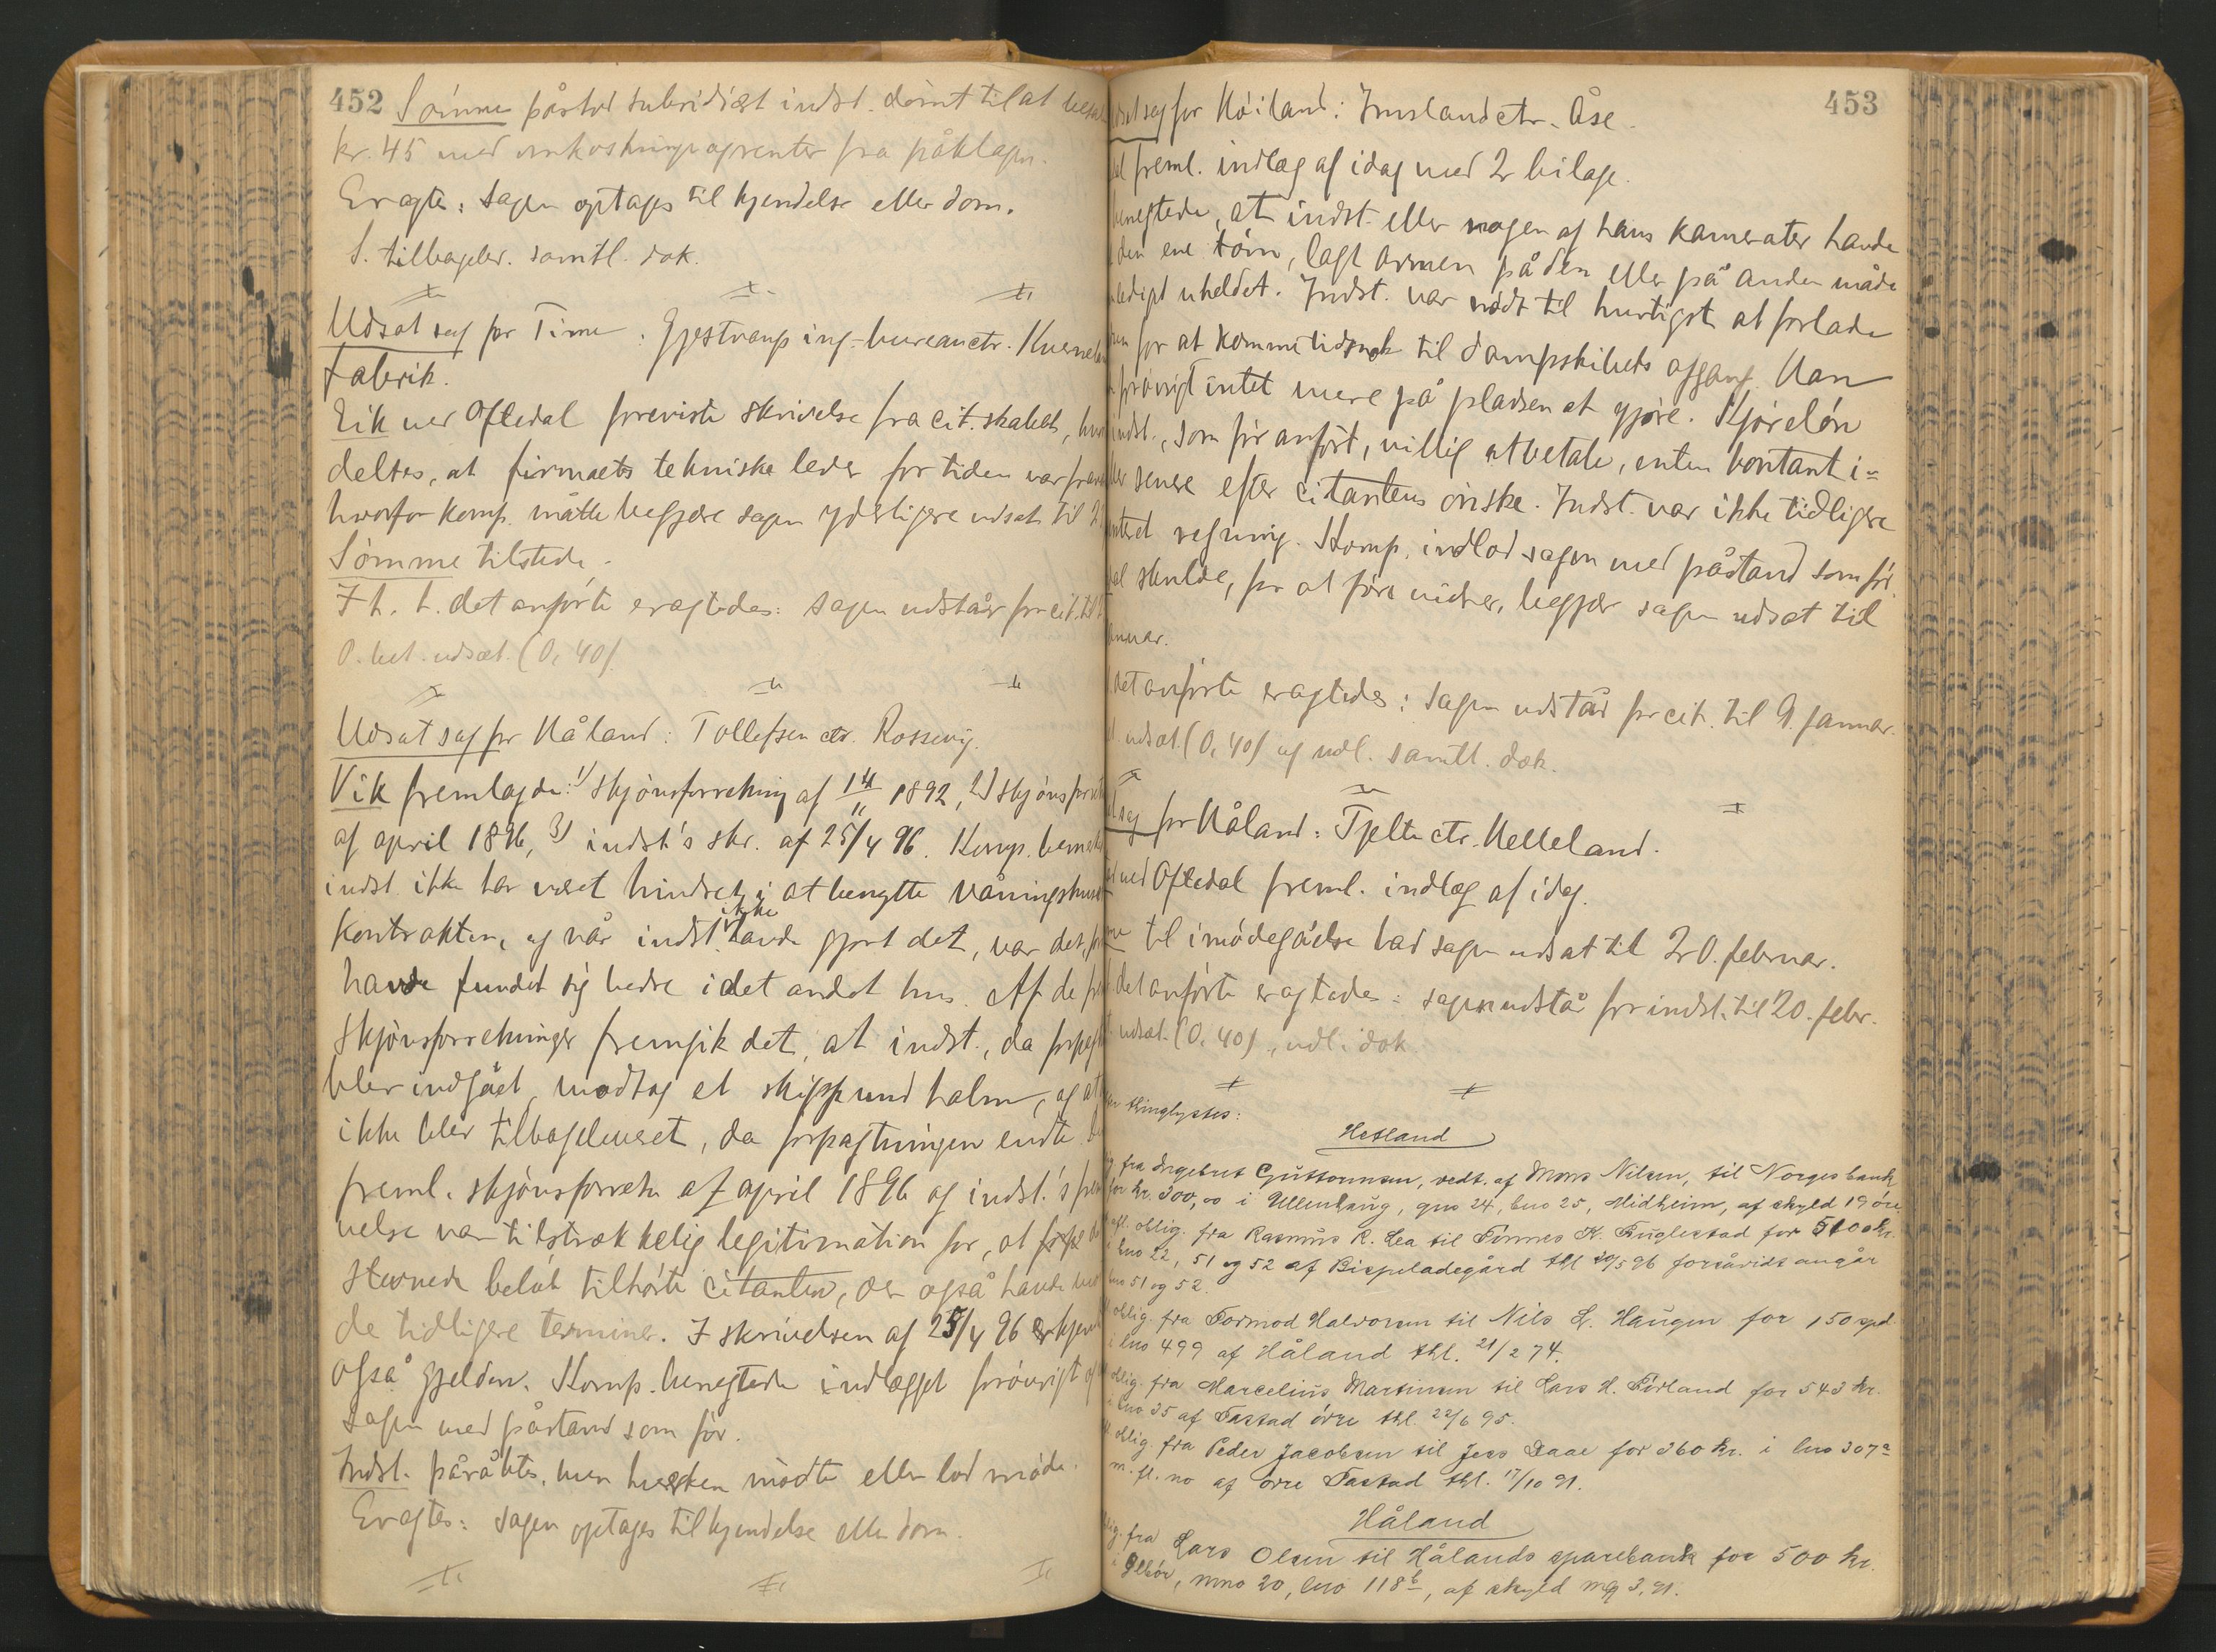 452 Sömme påstod subsidiært indst. dömt til at betale
kr. 45 med omkostninger og renter fra påklagen.
Eragtes: Sagen optages til kjendelse eller dom.
S. tilbagelev. samtl. dok.
Udsat sag for Time: Gjestrangs ing-bureau ctr.
fabrik.
Eik ved Oftedal foreviste skrivelse fra cit. skabet,
deltes, at firmaets tekniske leder for tiden var
hvorfor komp. måtte begjære sagen yderligere udsat til
Sömme tilstede.
I h. t. det anförte eragtedes: Sagen udstår for cit. til
O. bet. udsæt. (0,40)
Udsat sag for Håland: Tollefsen ctr. Rossevig.
Vik fremlagde: 1) skjönsforretning af 14/11 1892, 2) skjönsforret
af april 1896, 3) indst's skr. af 25/4 96. Komp.
indst ikke har været hindret i at benytte våningshuset
kontrakten, og når indst. ikke havde gjort det, var det,
havde fundet sig bedre i det andet hus. Af de
skjönsforretninger fremgik det, at indst., da
blev indgået, modtog et skippund halm, og at
ikke blev tilbageleveret, da forpagtningen endte
freml. skjönsforretn. af april 1896 og indst.'s
velse var tilstrækkelig legitimation for, at
stevnede belöb tilhörte citanten, der også havde
de tidligere terminer. I skrivelsen af 25/4 96 erkjend
også gjelden. Komp. benegtede indlægget foröivrigt og
sagen med påstand som för.
Indst. påråbtes, men hverken mödte eller lod möde.
Eragtes: Sagen optages til kjendelse eller dom.
453
Udsat sag for Höiland: Imsland ctr. Åse.
freml. indlæg af idag med 2 bilage.
benegtede, at indst. eller nogen af hans kamerater havde
den ene töm, lagt armen på den eller på anden måde
uheldet. Indst. var nödt til hurtigst at forlade
for at komme tidsnok til dampskibets afgang. Han
foröivrigt intet mere på pladsen at gjöre. Kjörelön
indst., som för anfört, villig at betale, enten kontant i-
senere efter citantens önske. Indst. var ikke tidligere
regning. Komp. indlod sagen med påstand som för.
skulde, for at före vidner, begjær sagen udsat til
januar.
det anförte eragtedes: Sagen udstår for cit. til 9. januar.
udsæt. (0,40) og udl. samtl. dok.
sag for Håland: Tjelta ctr. Helleland.
ved Oftedal freml. indlæg af idag.
til imödegåelse bad sagen udsat til 20. februar.
det anförte eragtedes: sagen udstå for indst. til 20. febr.
udsæt. (0,40), udl. dok.
thinglystes:
Hetland
fra Ingebret Guttormsen, vedt. af Mons Nilsen, til Norges bank
for kr. 300,00 i Ullenhaug, gno 24, bno 25, Midheim, af skyld 19 öre
afl. oblig. fra Rasmus R. Lea til Tönnes K. Fuglestad for 5100 kr.
i bno 22, 51 og 52 af Bispeladegård thl 20/5 96 forsåvidt angår
bno 51 og 52.
oblig. fra Tormod Halvorsen til Nils L. Haugen for 150 spd.
i bno 499 af Håland thl. 21/2 74.
oblig. fra Marcelius Martinsen til Lars H. Förland for 543 kr.
i bno 35 af Tastad övre thl. 22/6 95.
oblig. fra Peder Jacobsen til Jess Daae for 360 kr. i bno 307a
m. fl. no af övre Tastad thl. 17/10 91.
Håland
oblig. fra Lars Olsen til Hålands sparebank for 500 kr.
i mno 20, bno 118b, af skyld mk 3,91.